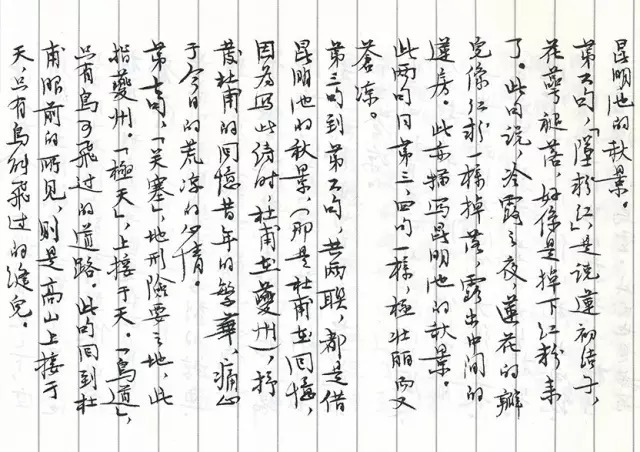 昆明池的秋景。
第六句,「墜粉红」,是说蓮初结子,
花蕚褪落,好像是掉下红粉来
了。此句说,冷露之夜,蓮花的瓣
完像红粉一樣掉落,露出中间的
蓮房。此亦描写昆明池的秋景。
此两句同第三,四句一樣,極壮丽而又
蒼凉。
第三句到第六句,共两聯,都是借
昆明池的秋景,(那是杜甫在回憶,
因為写此诗时,杜甫在夔州),抒
發杜甫的回憶昔年的繁華,痛心
于今日的荒凉的心情。
第七句,「关塞」,地形險要之地,此
指夔州。「極天」,上接于天。「鳥道」,
只有鳥可飛过的道路。此句回到杜
甫眼前的所见,则是高山上接于
天,只有鳥能飛过的縫兒。